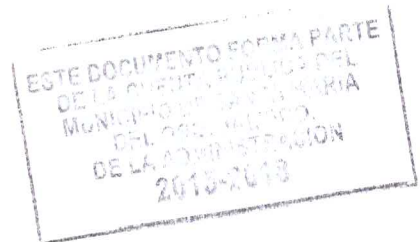 ESTE DOCUMENTO FORMA PARTE
DE LA CUENTA PUBLICA DEL
MUNICIPIO DE SANTA MARIA
DEL
DE LA ADMINISTRACION